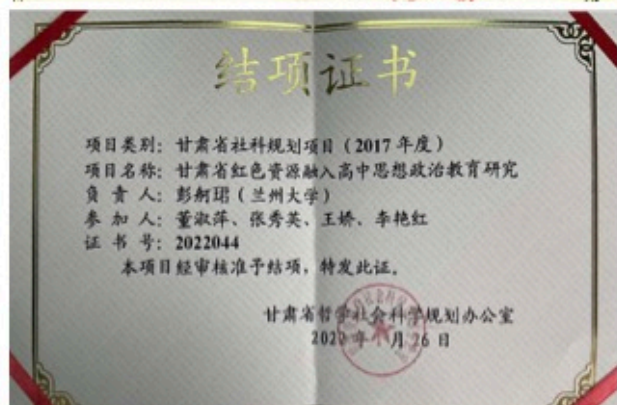 结项证书
项目类别：甘肃省社科规划项目（2017 年度）
项目名称：甘肃省红色资源融入高中思想政治教育研究
负 责 人：彭舸珺（兰州大学）
参 加 人：董淑萍、张秀英、王娇、李艳红
证 书 号：2022044
本项目经审核准予结项，特发此证。
甘肃省哲学社会科学规划办公室
2022 年 月 26 日